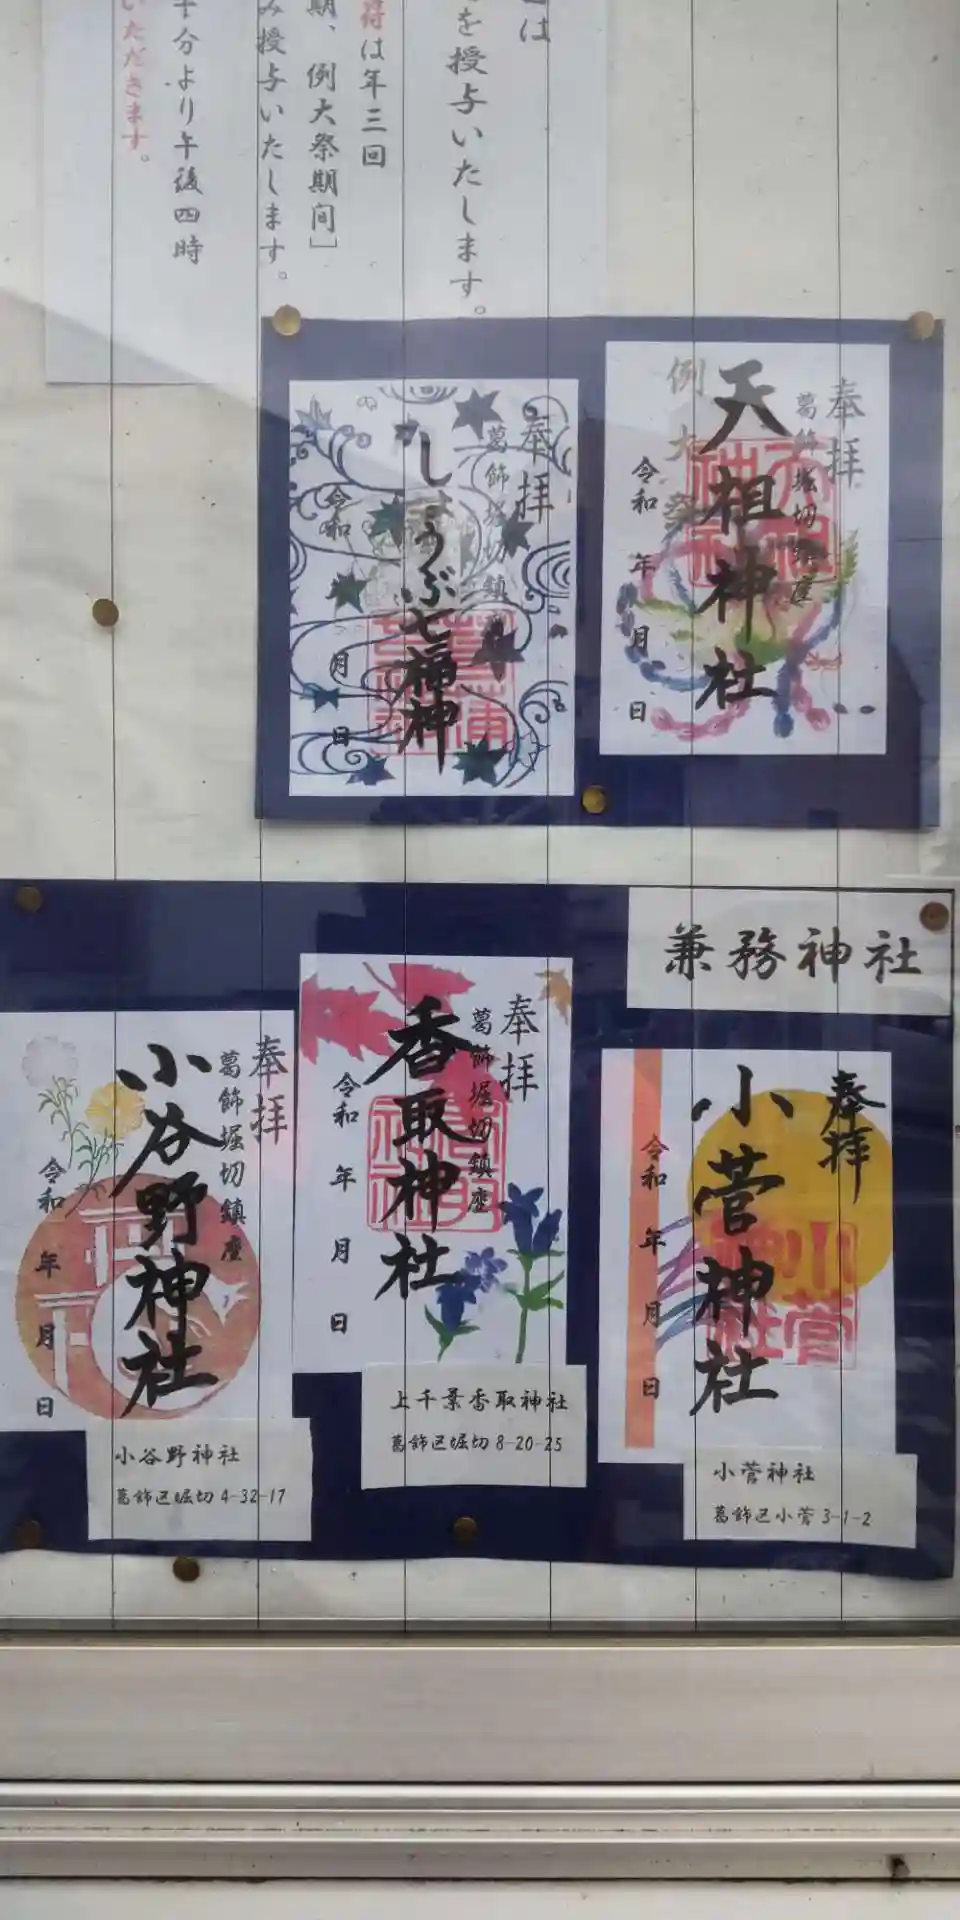 は
を授与いたします。
荷は年三回
期、例大祭期间」
み授与いたします。
十分より午後四時
いただきます。
奉拝
葛飾堀切鎮座
天祖神社
例大祭
令和 年 月 日
奉拝
葛飾堀切鎮座
しょうぶ七福神
令和 月 日
兼務神社
奉拝
小菅神社
小菅神社
令和 年 月 日
小菅神社
葛飾区小菅3-1-2
奉拝
葛飾堀切鎮座
香取神社
令和 年 月 日
上千葉香取神社
葛飾区堀切8-20-25
奉拝
葛飾堀切鎮座
小谷野神社
令和 年 月 日
小谷野神社
葛飾区堀切4-32-17